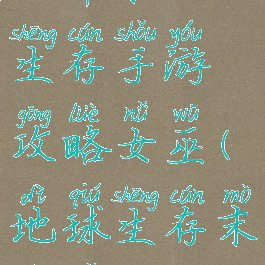 shēng cún shǒu yóu
生存手游
gōng lüè nǚ wū
攻略女巫(
dì qiú shēng cún mò
地球生存末